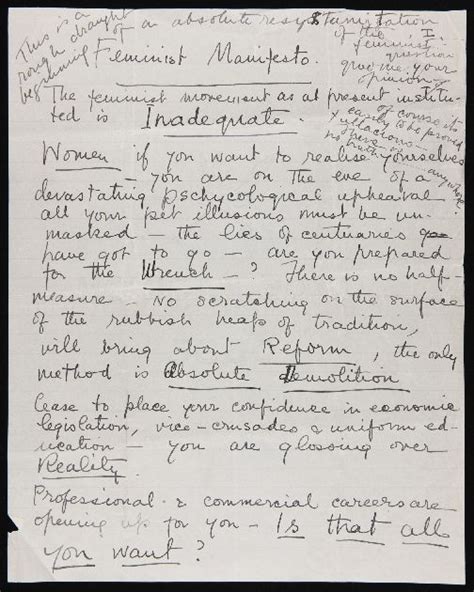 This is a
rough draught
beginning of an absolute resystamitation
of the
feminist
question
give me your
opinion
of course it's
easily to be proved
fallacious—
There is no truth anywhere.
I.
Feminist Manifesto.
The feminist movement as at present institu-
ted is Inadequate.
Women if you want to realise yourselves
— you are on the eve of a
devastating pschycological upheaval
all your pet illusions must be un-
masked — the lies of centuaries
have got to go — are you prepared
for the Wrench — ? There is no half-
measure — No scratching on the surface
of the rubbish heap of tradition,
will bring about Reform, the only
method is Absolute Demolition
Cease to place your confidence in economic
legislation, vice-crusades & uniform ed-
ucation — you are glossing over
Reality.
Professional & commercial careers are
opening up for you — Is that all
you want?